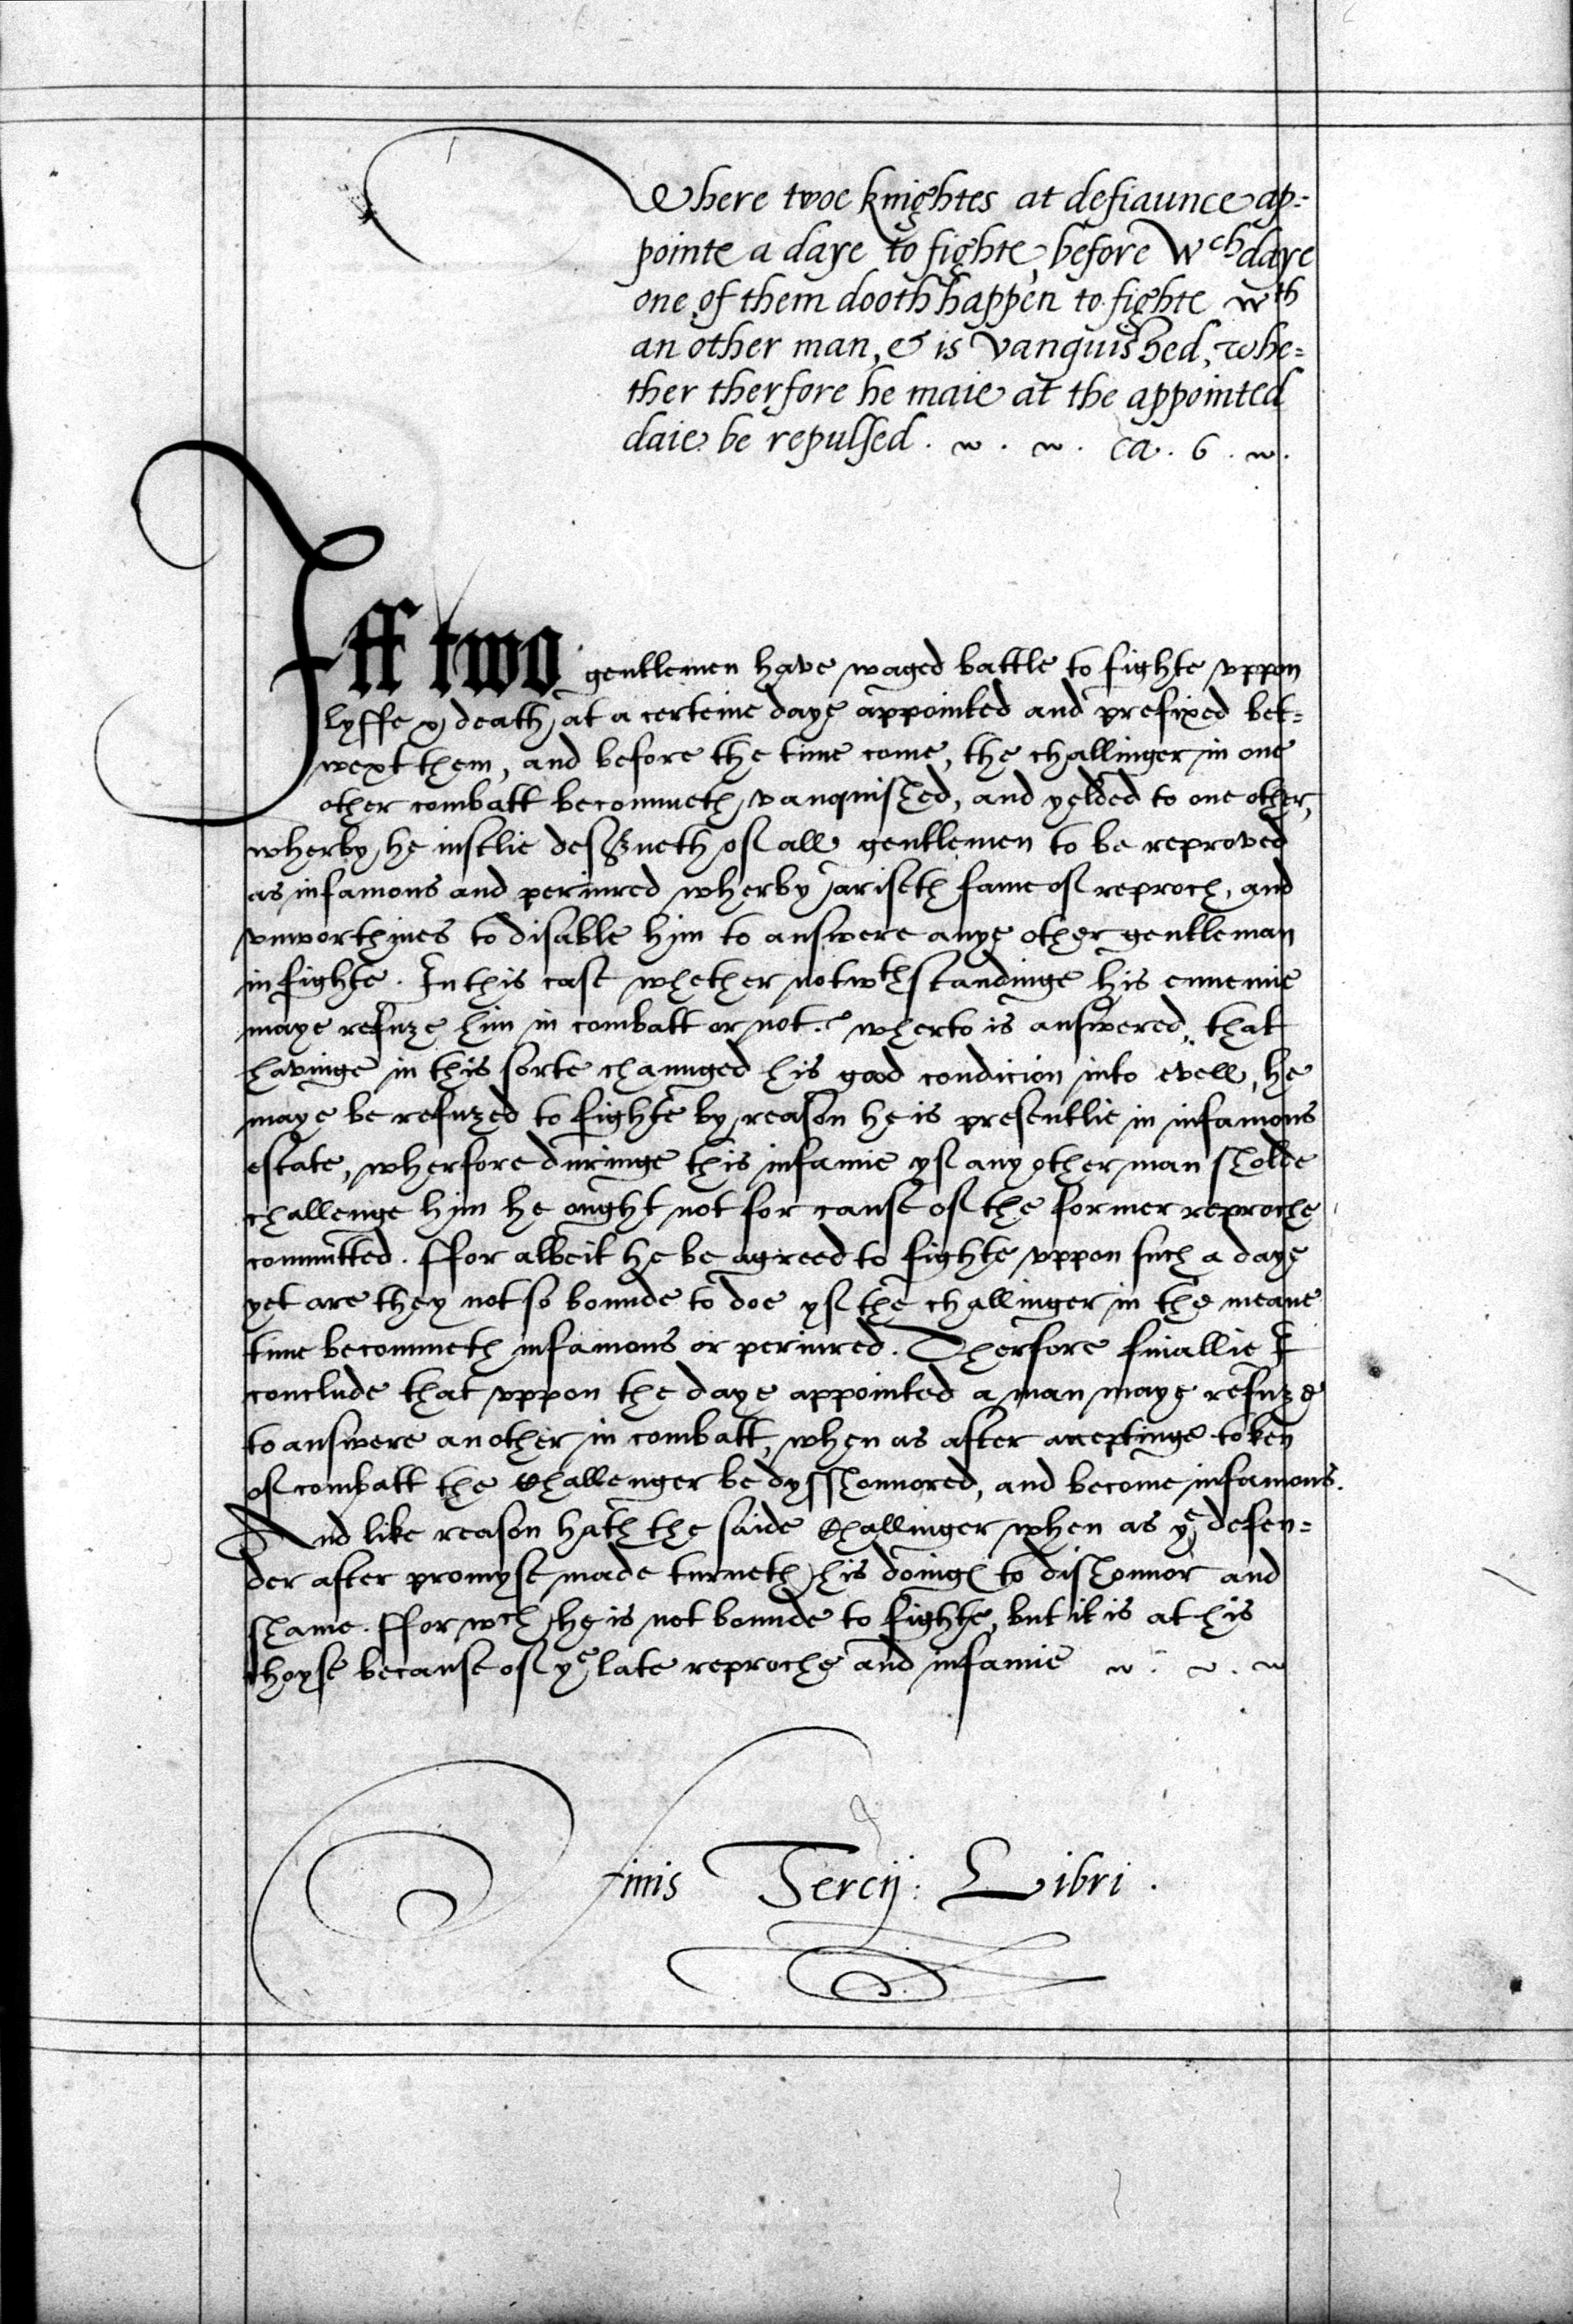 Where twoe knightes at defiaunce ap=
pointe a daye to fighte, before Wch daye
one of them dooth happen to fighte wth
an other man, & is vanquished, whe=
ther therfore he maie at the appointed
daie be repulsed. ca. 6.
Iff two gentlemen have waged battle to fighte vppon
lyffe & death, at a certeine daye appointed and prefixed bet=
wext them, and before the time come, the challinger in one
other combatt becommeth vanquished, and yelded to one other,
wherby he iustlie deserueth of all gentlemen to be reproved
as infamous and periured wherby ariseth fame of reproch, and
vnworthines to disable him to answere anye other gentleman
in fighte. In this case whether notwthstandinge his ennemie
maye refuze him in combatt or not. wherto is answered, that
havinge in this sorte chaunged his good condicion into evell, he
maye be refuzed to fighte by reason he is presentlie in infamous
estate, wherfore duringe this infamie yf any other man sholde
challenge him he ought not for cause of the former reproche
committed. ffor albeit he be agreed to fighte vppon such a daye
yet are they not so bounde to doe yf the challinger in the meane
time becommeth infamous or periured. Therfore finallie I
conclude that vppon the daye appointed a man maye refuze
to answere another in combatt, when as after acceptinge token
of combatt the Challenger be dysshonnored, and become infamous.
And like reason hath the saide Challinger when as ye defen=
der after promyse made turneth his doings to dishonnor and
shame. ffor wch he is not bounde to fighte, but it is at his
choyse because of ye late reproche and infamie
finis Tercij: Libri.